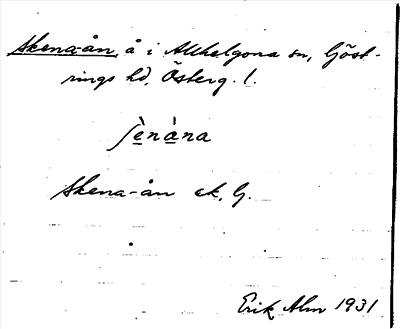 Skena-ån, å i Allhelgona sn, Göst-
rings hd, Österg. l.
ʃènàna
Skena-ån ek. G.
Erik Alm 1931